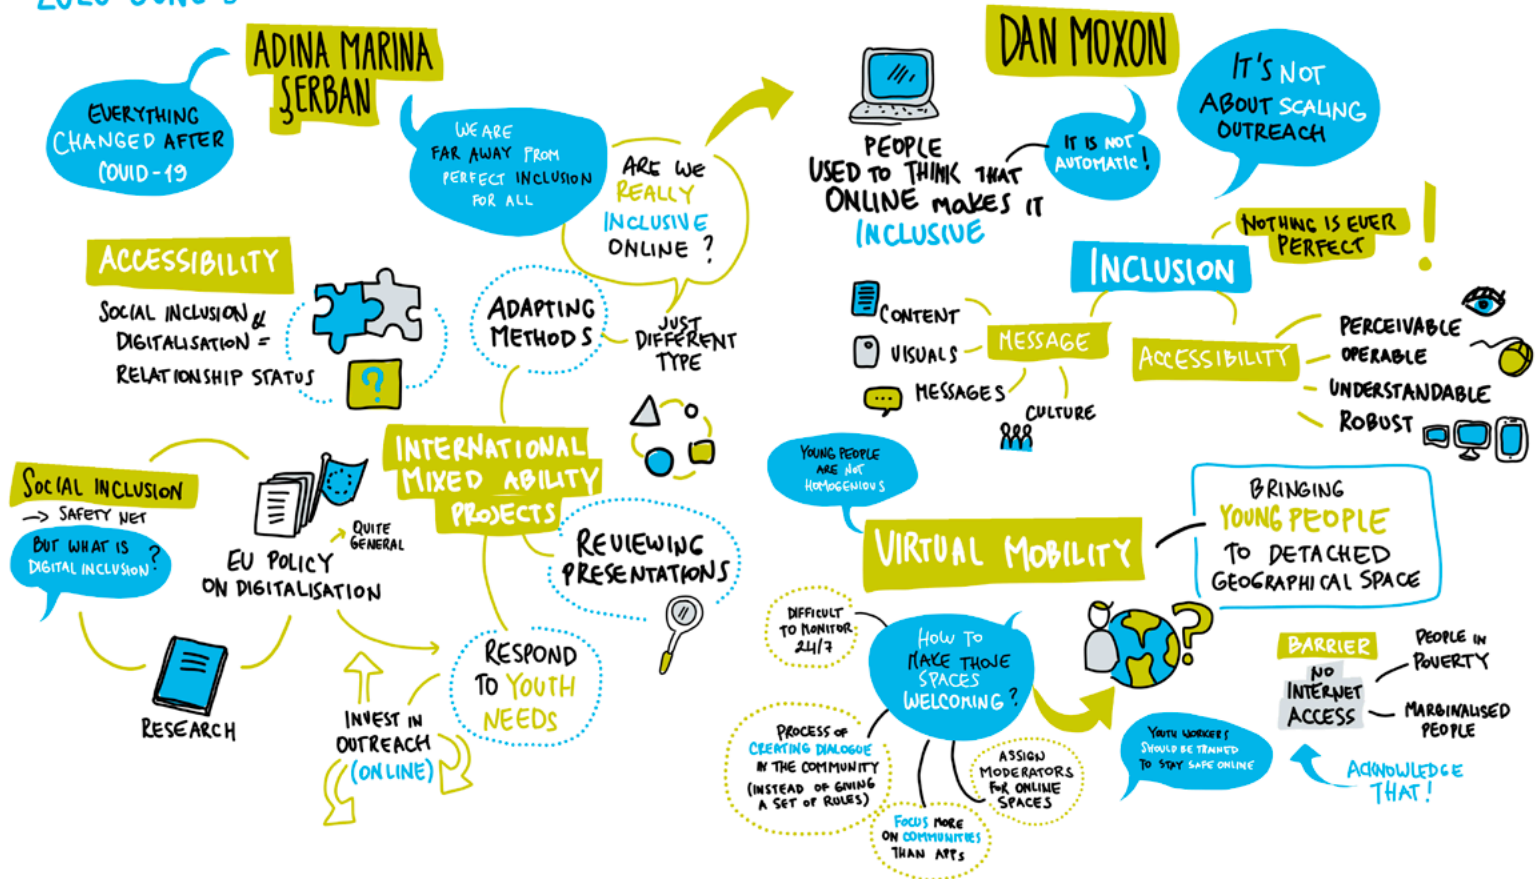 2020 JUNE
ADINA MARINA
ŞERBAN
EVERYTHING
CHANGED AFTER
COVID-19
WE ARE
FAR AWAY FROM
PERFECT INCLUSION
FOR ALL
ARE WE
REALLY
INCLUSIVE
ONLINE?
ACCESSIBILITY
SOCIAL INCLUSION &
DIGITALISATION =
RELATIONSHIP STATUS
?
ADAPTING
METHODS
JUST
DIFFERENT
TYPE
INTERNATIONAL
MIXED ABILITY
PROJECTS
SOCIAL INCLUSION
→ SAFETY NET
BUT WHAT IS
DIGITAL INCLUSION?
EU POLICY
ON DIGITALISATION
QUITE
GENERAL
REVIEWING
PRESENTATIONS
RESEARCH
RESPOND
TO YOUTH
NEEDS
INVEST IN
OUTREACH
(ONLINE)
DAN MOXON
IT'S NOT
ABOUT SCALING
OUTREACH
PEOPLE
USED TO THINK THAT
ONLINE MAKES IT
INCLUSIVE
IT IS NOT
AUTOMATIC!
NOTHING IS EVER
PERFECT
!
INCLUSION
MESSAGE
CONTENT
VISUALS
MESSAGES
CULTURE
ACCESSIBILITY
PERCEIVABLE
OPERABLE
UNDERSTANDABLE
ROBUST
YOUNG PEOPLE
ARE NOT
HOMOGENIOUS
VIRTUAL MOBILITY
BRINGING
YOUNG PEOPLE
TO DETACHED
GEOGRAPHICAL SPACE
DIFFICULT
TO MONITOR
24/7
HOW TO
MAKE THOSE
SPACES
WELCOMING?
?
PROCESS OF
CREATING DIALOGUE
IN THE COMMUNITY
(INSTEAD OF GIVING
A SET OF RULES)
FOCUS MORE
ON COMMUNITIES
THAN APPS
ASSIGN
MODERATORS
FOR ONLINE
SPACES
YOUTH WORKERS
SHOULD BE TRAINED
TO STAY SAFE ONLINE
BARRIER
NO
INTERNET
ACCESS
PEOPLE IN
POVERTY
MARGINALISED
PEOPLE
ACKNOWLEDGE
THAT!